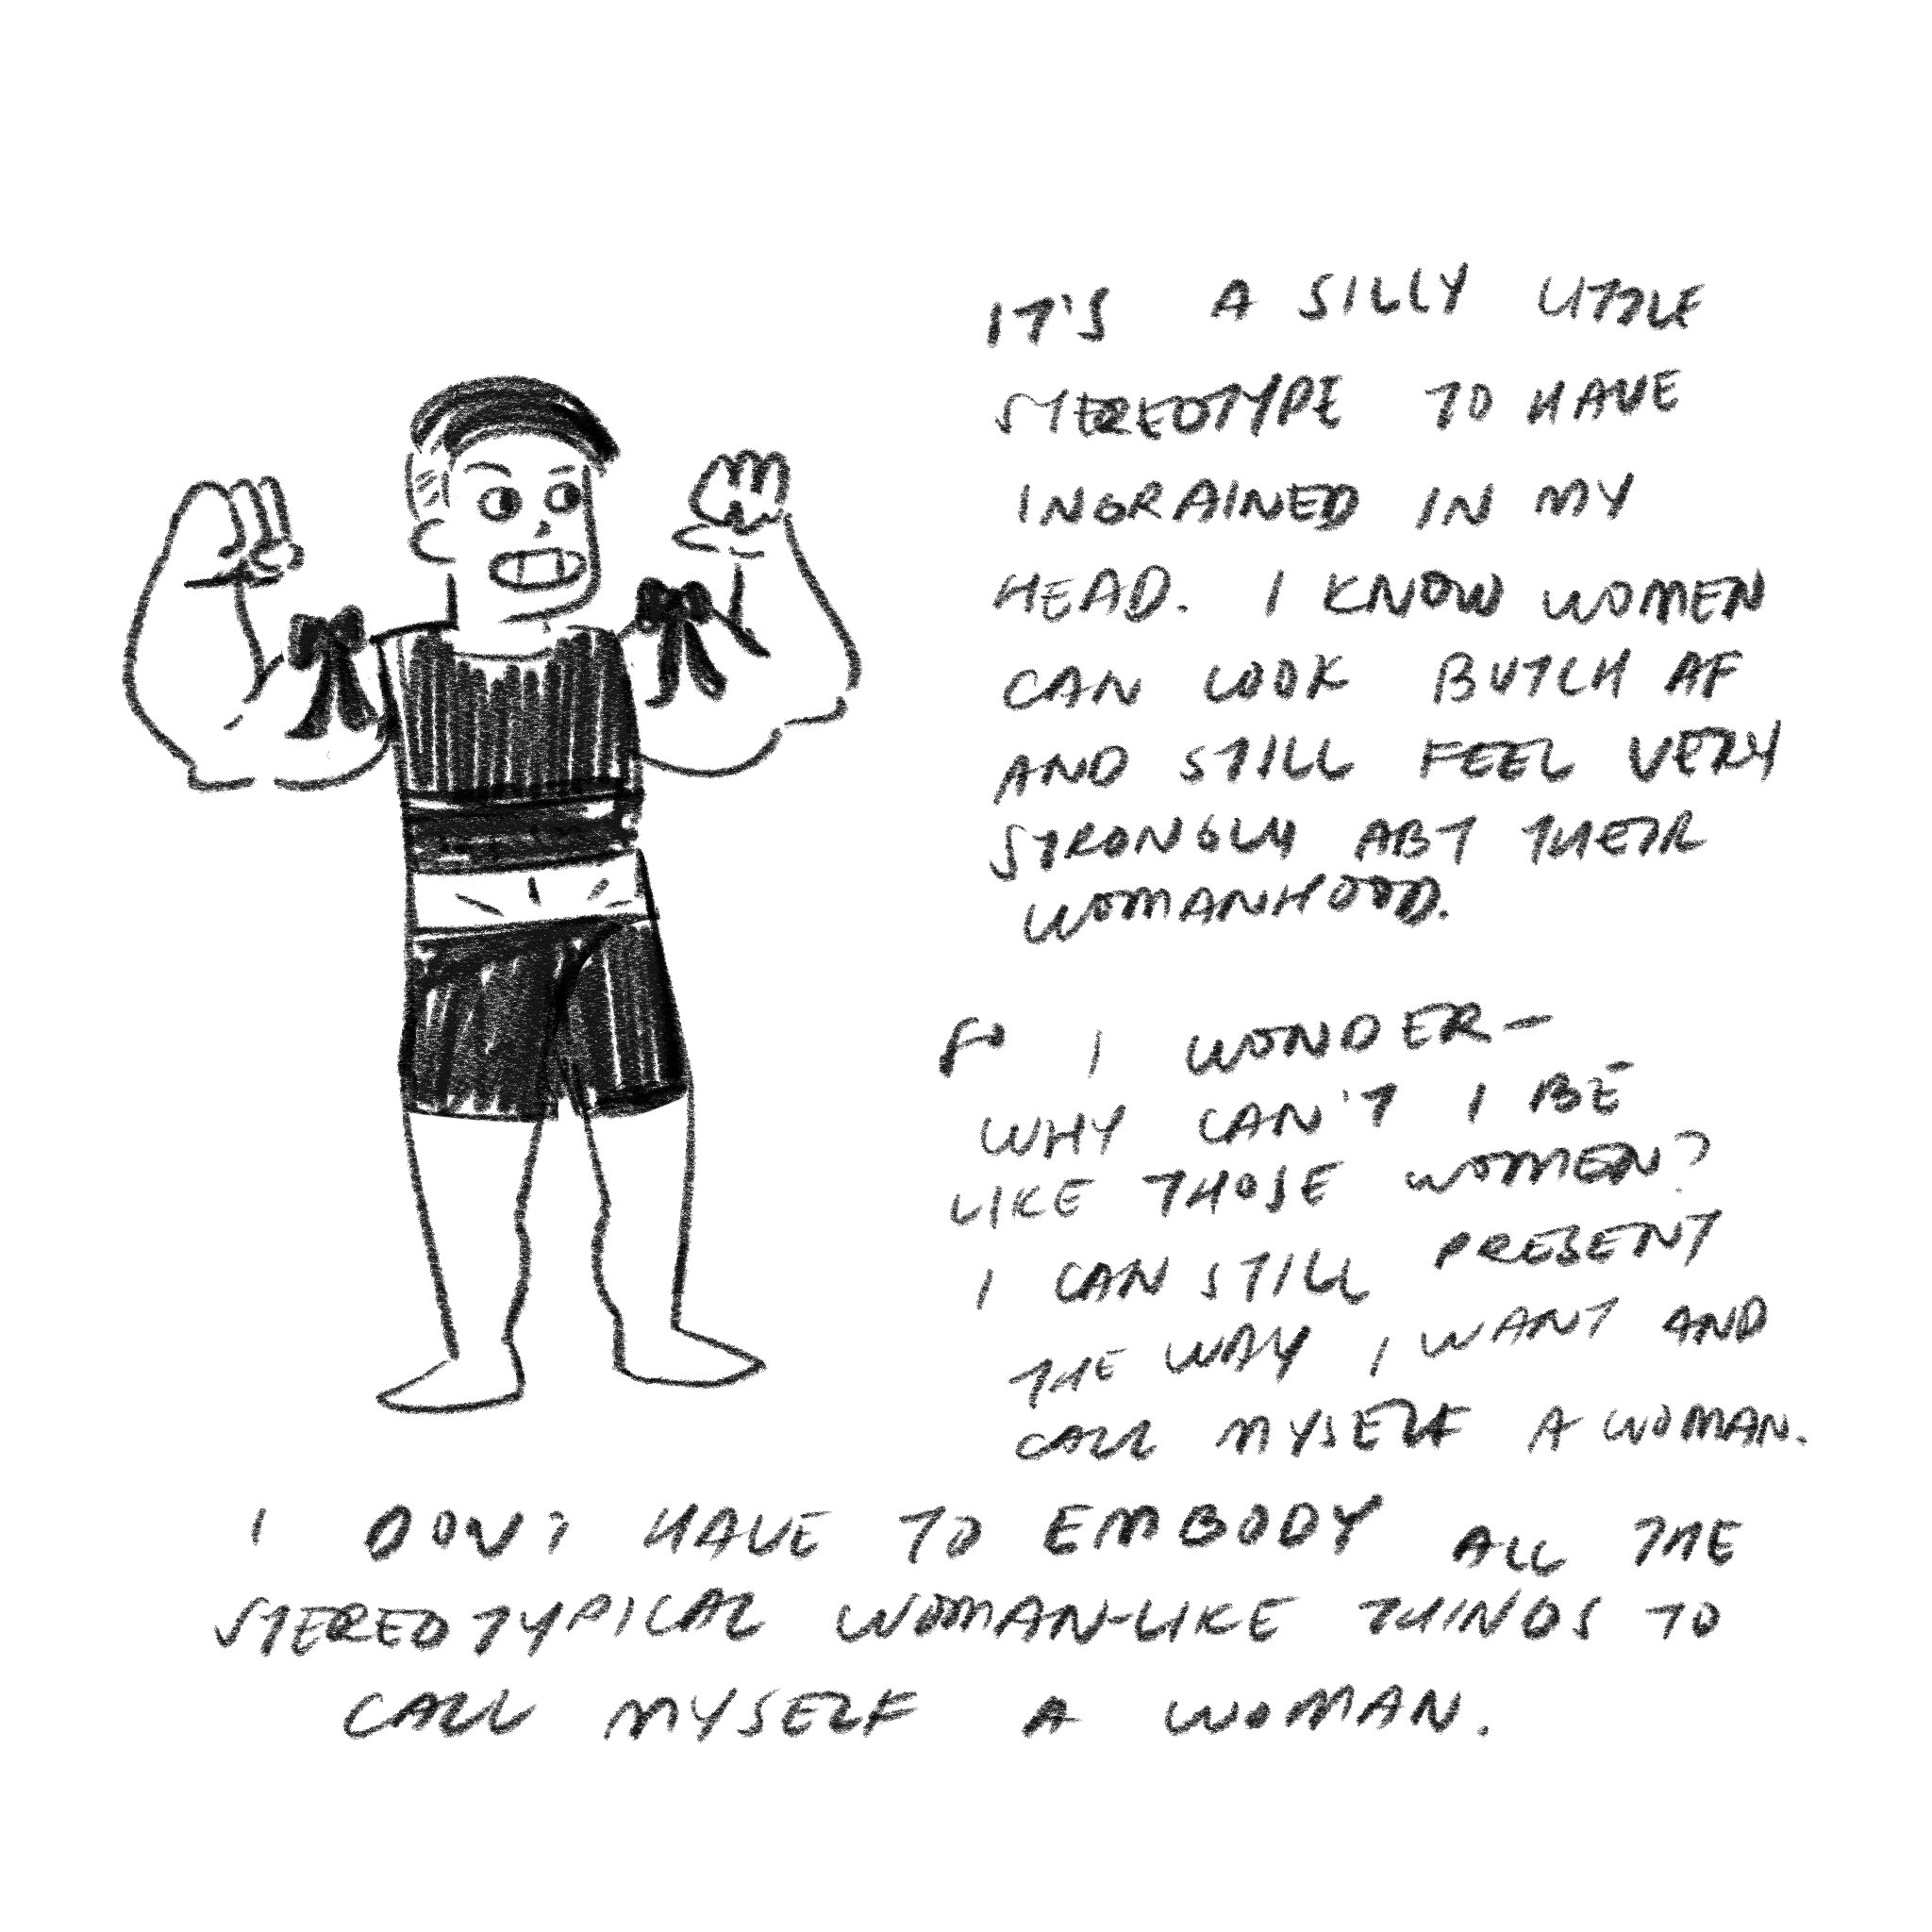 IT'S A SILLY LITTLE
STEREOTYPE TO HAVE
INGRAINED IN MY
HEAD. I KNOW WOMEN
CAN LOOK BUTCH AF
AND STILL FEEL VERY
STRONGLY ABT THEIR
WOMANHOOD.
SO I WONDER—
WHY CAN'T I BE
LIKE THOSE WOMEN?
I CAN STILL PRESENT
THE WAY I WANT AND
CALL MYSELF A WOMAN.
I DON'T HAVE TO EMBODY ALL THE
STEREOTYPICAL WOMAN-LIKE THINGS TO
CALL MYSELF A WOMAN.